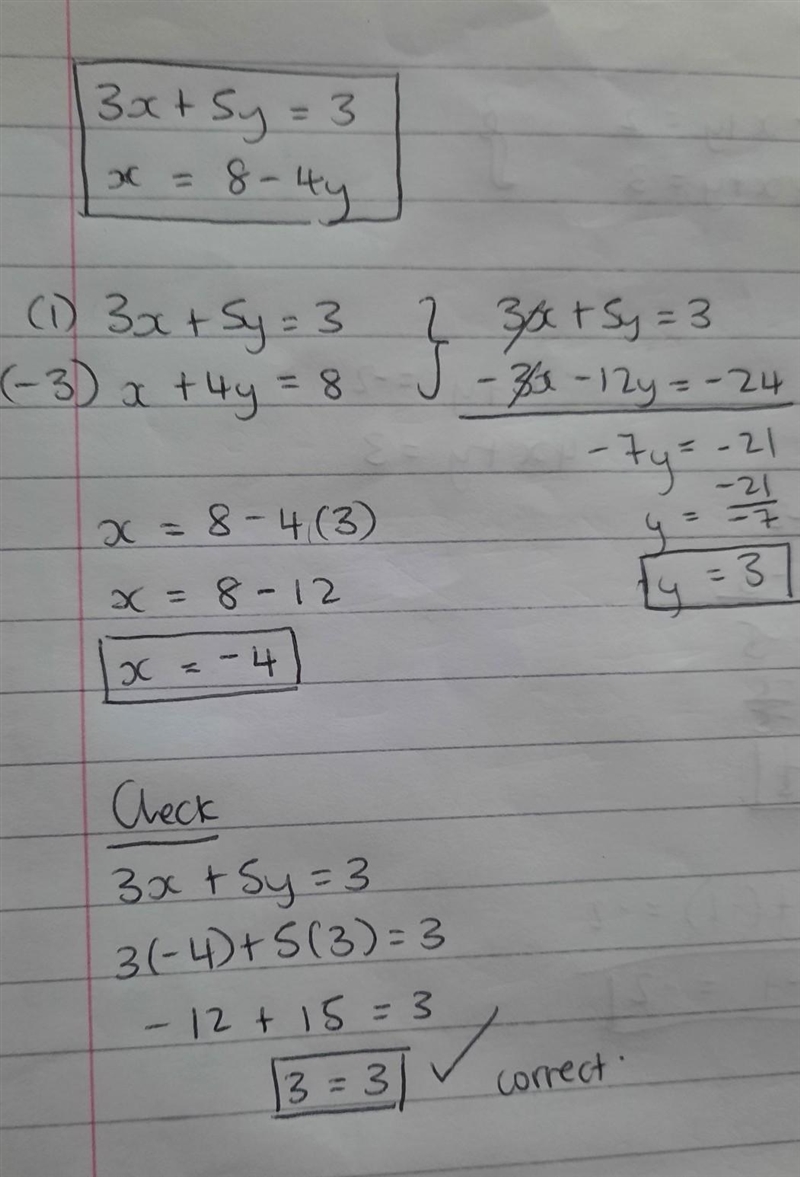 3x + 5y = 3
x = 8 - 4y
(1) 3x + 5y = 3
(-3) x + 4y = 8
3x + 5y = 3
-3x - 12y = -24
-7y = -21
y = -21/-7
y = 3
x = 8 - 4(3)
x = 8 - 12
x = -4
Check
3x + 5y = 3
3(-4) + 5(3) = 3
-12 + 15 = 3
3 = 3 ✓ correct.